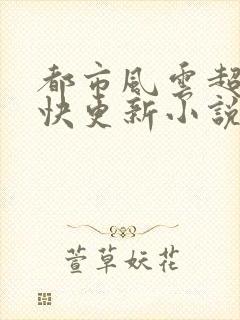 都市風雲超
快更新小說
萱草妖花